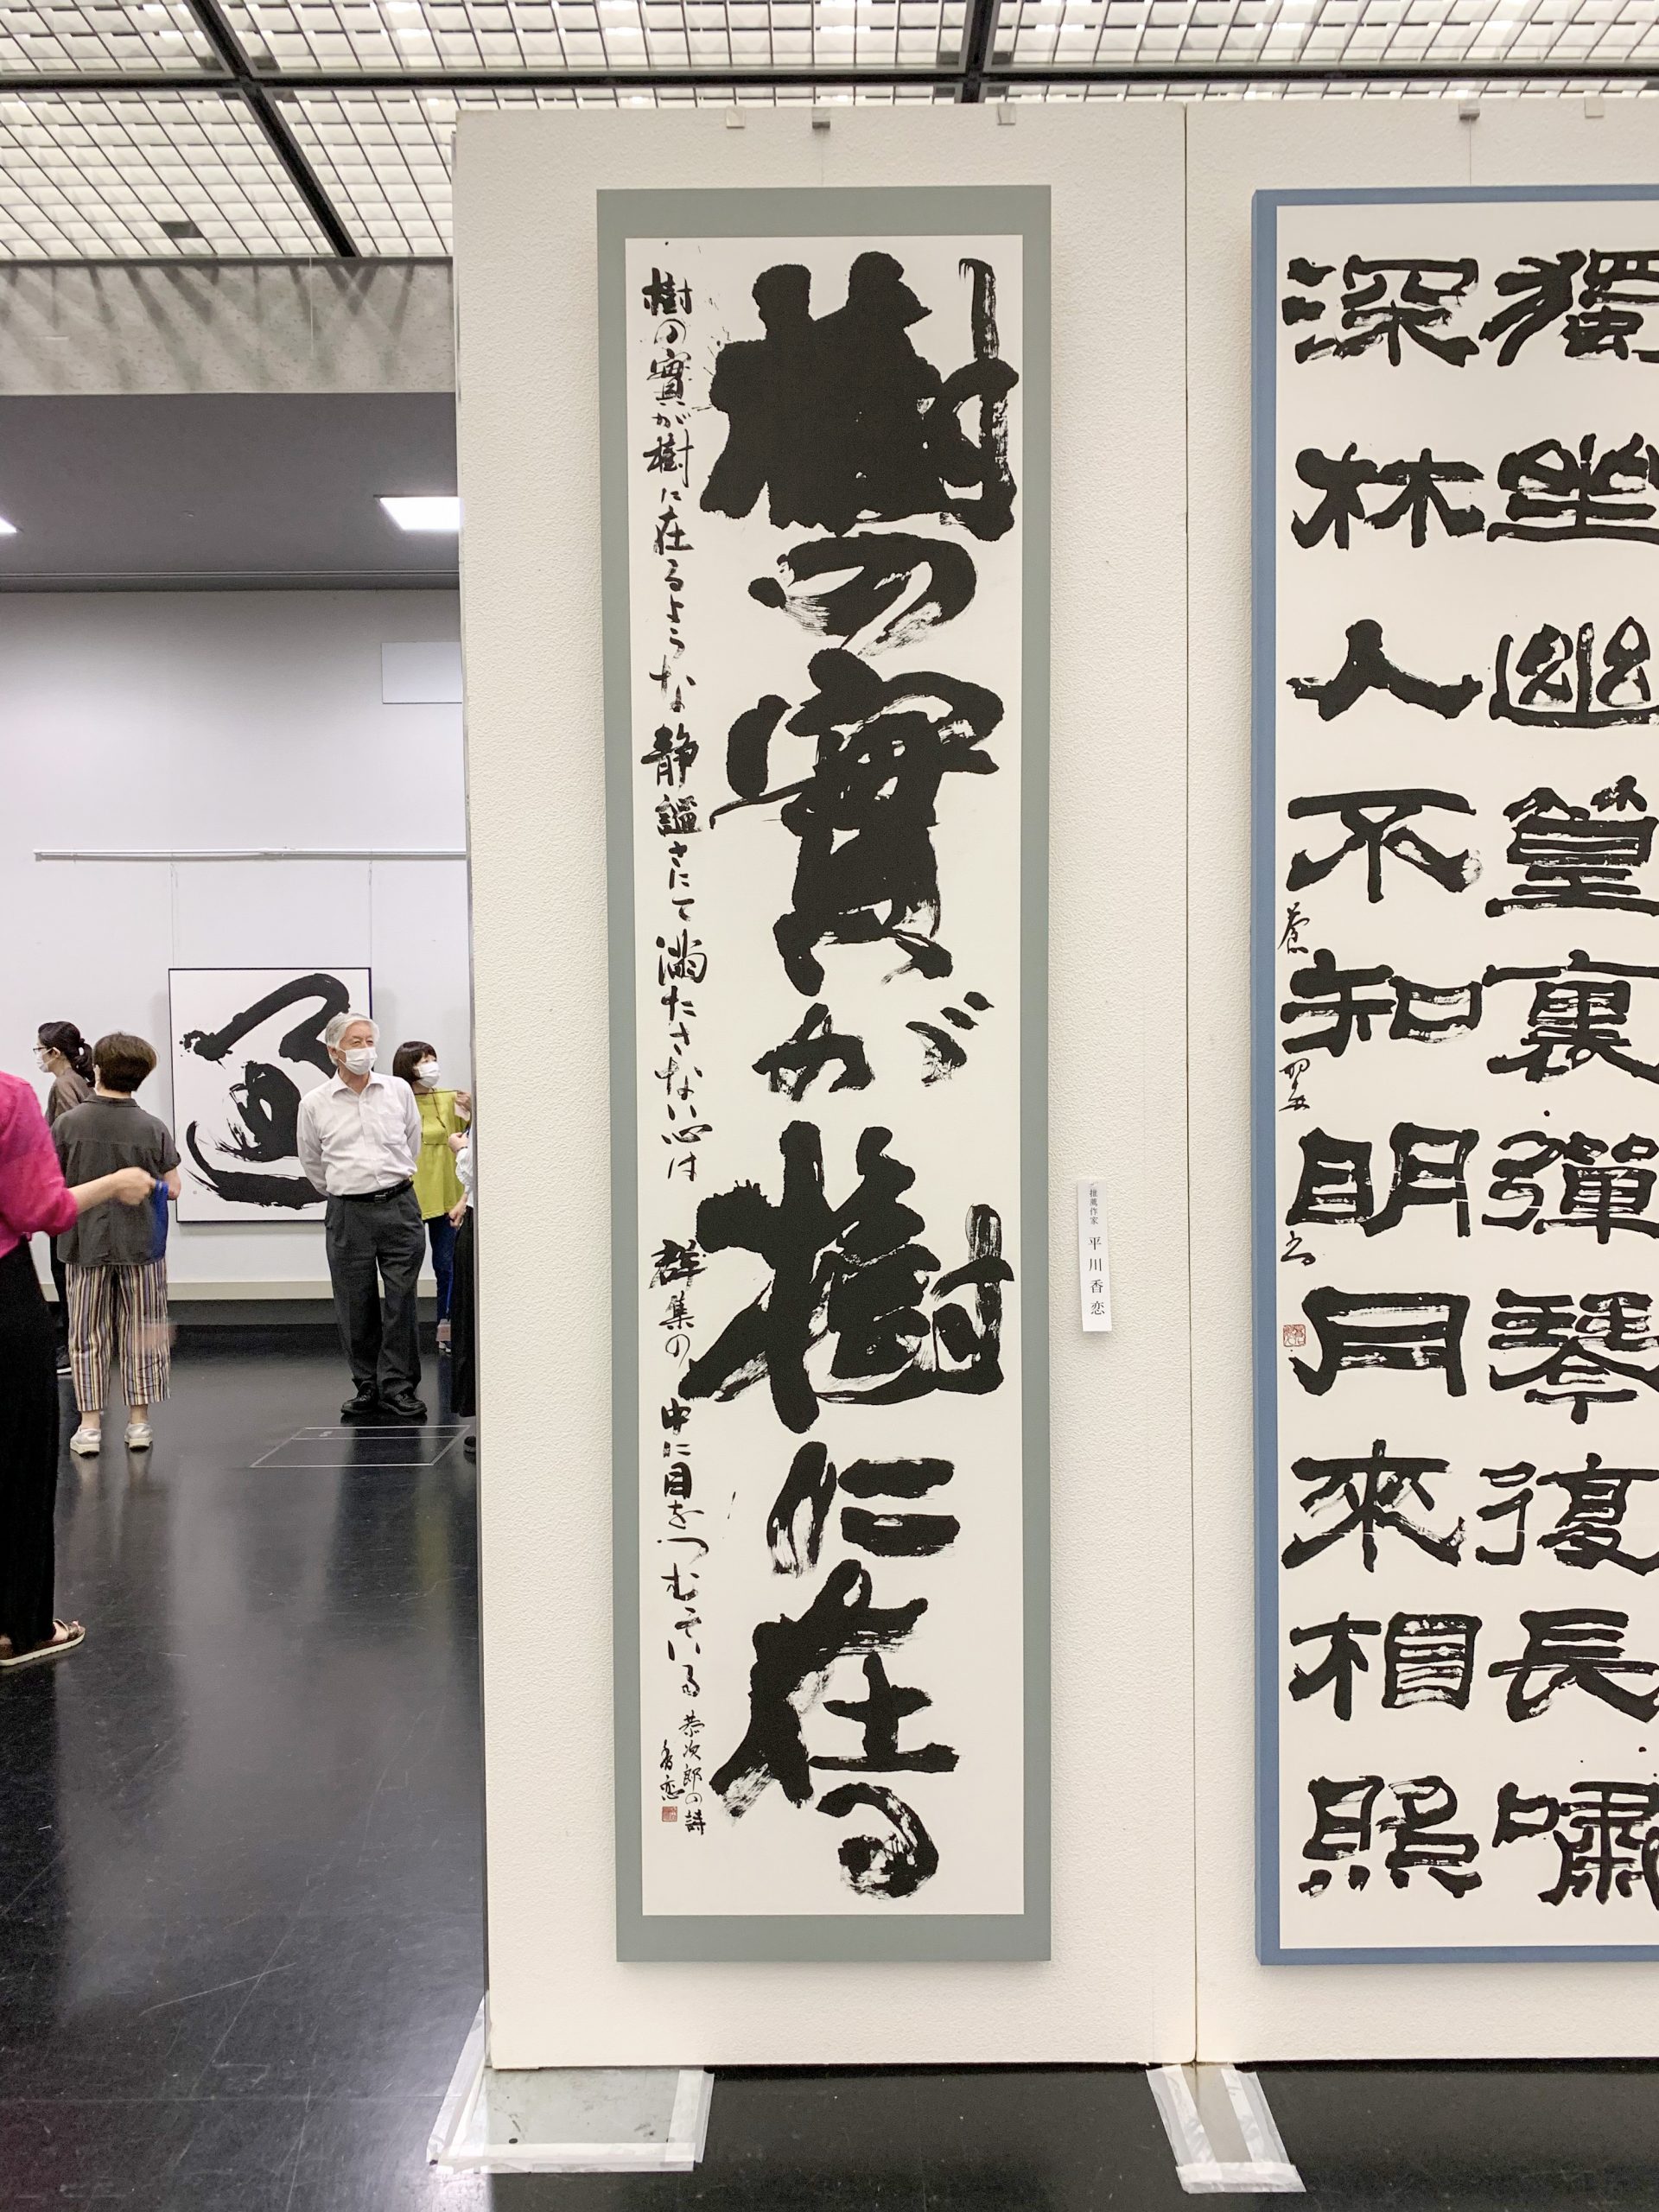 獨坐幽篁裏彈琴復長嘯
深林人不知明月來相照
推薦作家 平川香恋
樹の實が樹に在る
樹の實が樹に在るような静謳さにて満たさない心は 群集の中に目をつむている
恭次郎の詩
香恋